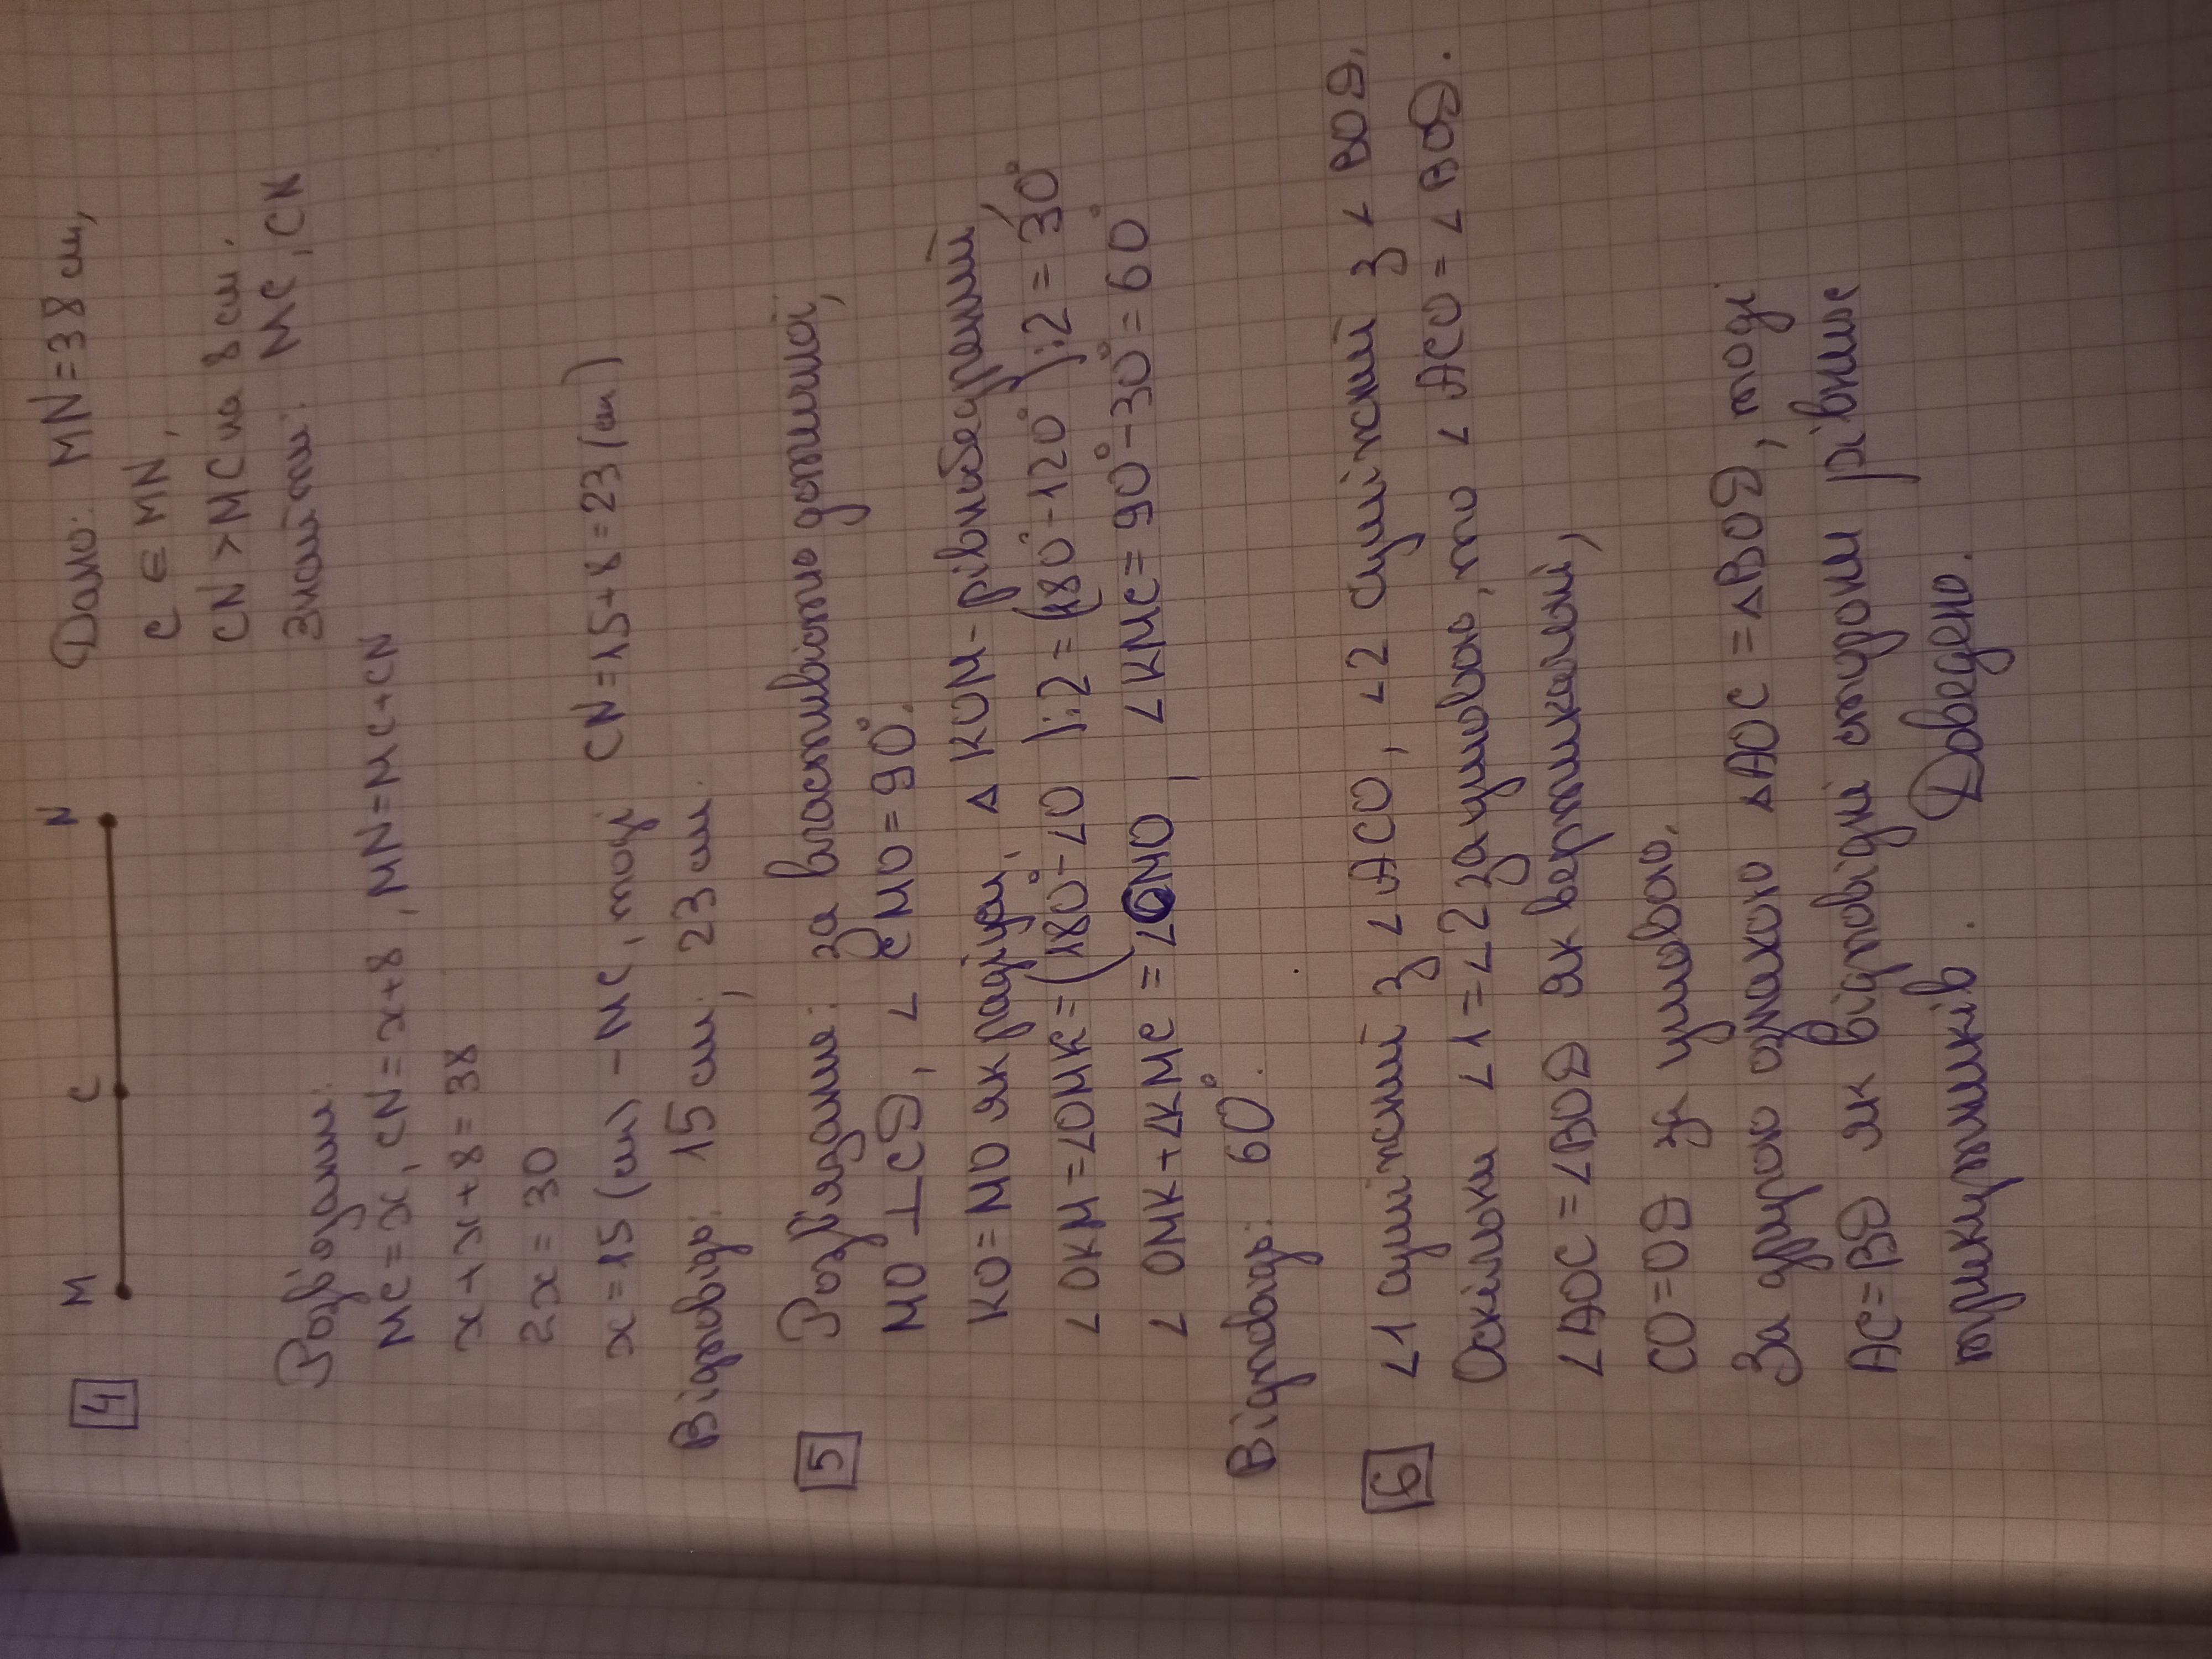 4
M C N
Дано: MN=38 см,
C ∈ MN,
CN > MC на 8 см.
Знайти: MC, CN
Розв'язання:
MC=x, CN=x+8, MN=MC+CN
x+x+8=38
2x=30
x=15 (см) - MC, тоді CN=15+8=23 (см)
Відповідь: 15 см; 23 см.
5 Розв'язання: за властивістю дотичної,
MO⊥CD, ∠CMO=90°.
KO=MO як радіуси, △KOM-рівнобедрений,
∠OKM=∠OMK=(180°-∠O):2=(180°-120°):2=30°
∠OMK+∠KMC=∠CMO, ∠KMC=90°-30°=60°
Відповідь: 60°.
6 ∠1 суміжний з ∠ACO, ∠2 суміжний з ∠BOD,
Оскільки ∠1=∠2 за умовою, то ∠ACO=∠BOD.
∠AOC=∠BOD як вертикальні,
CO=OD за умовою.
За другою ознакою △AOC=△BOD, тоді
AC=BD як відповідні сторони рівних
трикутників. Доведено.